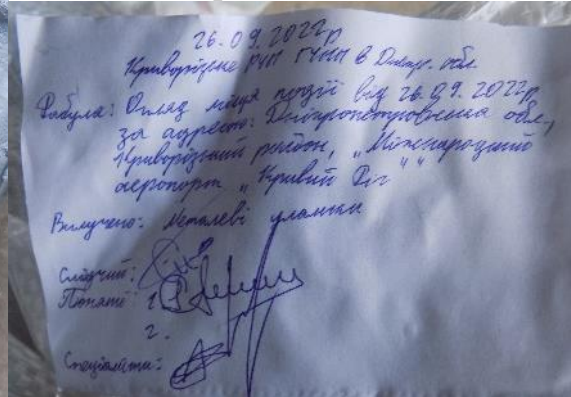 26.09.2022р
Криворізьке РУП ГУНП в Дніпр. обл
Фабула: Огляд місця події від 26.09.2022р,
за адресою: Дніпропетровська обл.,
Криворізький район, „Міжнародний
аеропорт „Кривий Ріг""
Вилучено: Металеві уламки
Слідчий:
Поняті 1.
2.
Спеціаліст: